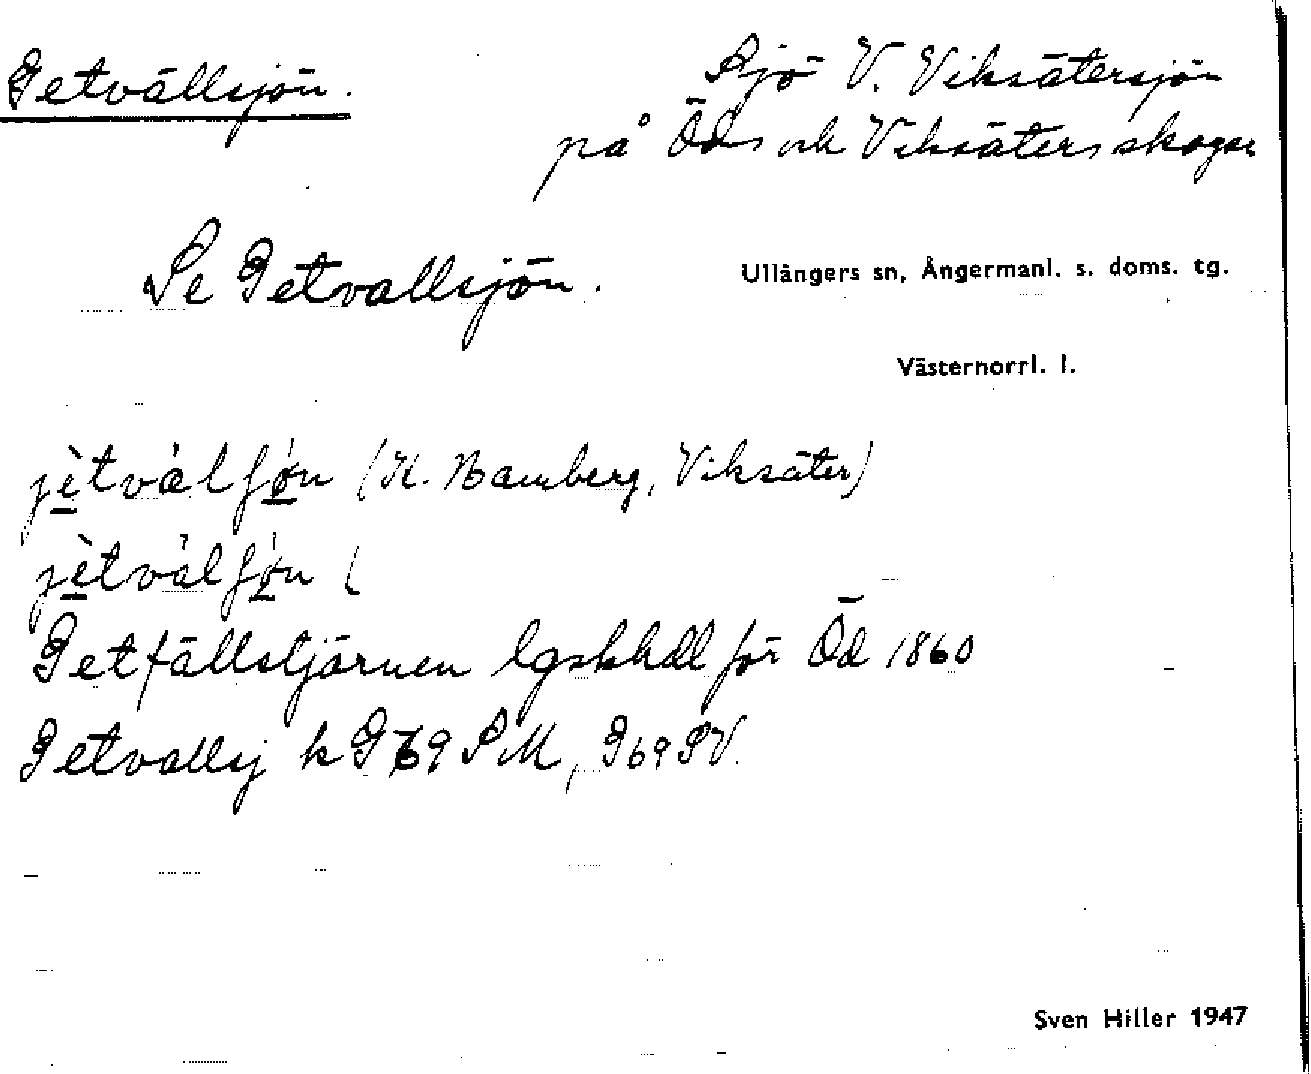 Getvällsjön.
Sjö V. Viksätersjön
på Öds och Viksäters skogar
Se Getvallsjön.
Ullångers sn, Ångermanl. s. doms. tg.
Västernorrl. l.
jètvàlʃø̀n (K. Bamberg, Viksäter)
jètvàlʃø̀n (
Getfällstjärnen lgskhdl för Öd 1860
Getvallsj k G69 SM, G69 SV.
Sven Hiller 1947